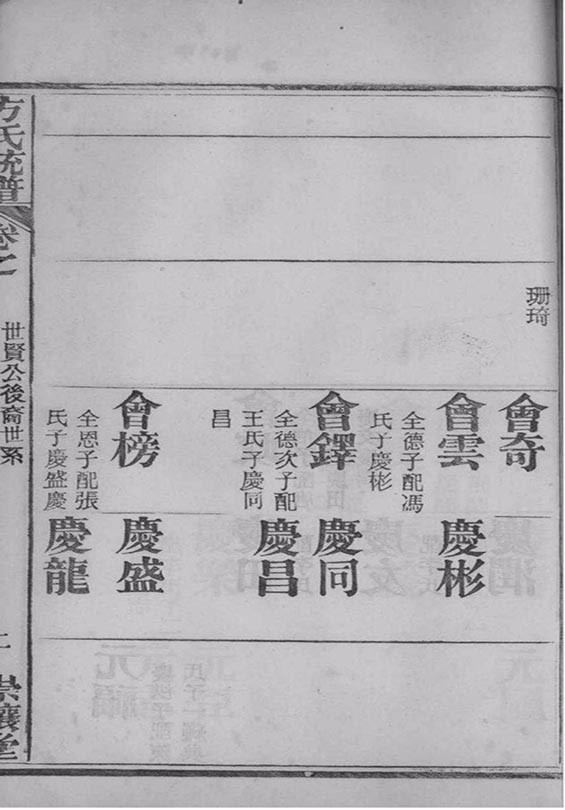 珊琦
會奇
會雲
仝德子配馮
氏子慶彬
慶彬
會鐸
仝德次子配
王氏子慶同
昌
慶同
慶昌
會榜
仝恩子配張
氏子慶盛慶
慶盛
慶龍
方氏統譜
卷之
世賢公後裔世系
崇讓堂